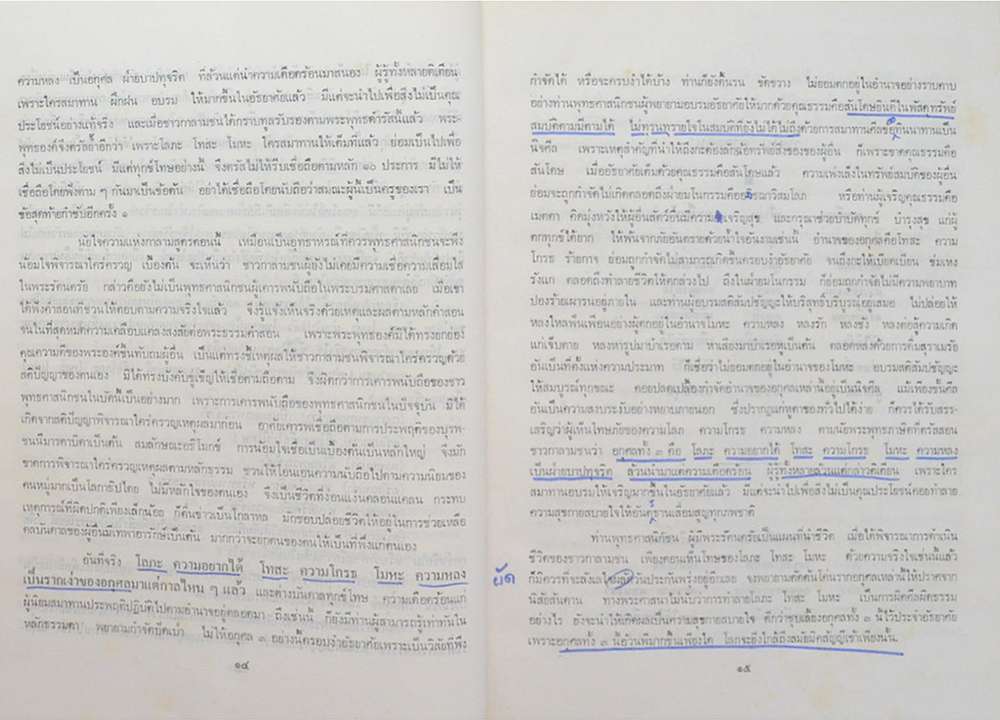 ความหลง เป็นอกุศล ฝ่ายบาปทุจริต ที่ล้วนแต่นำความเดือดร้อนมาสนอง ผู้รู้ทั้งหลายติเตียน
เพราะใครสมาทาน ฝึกฝน อบรม ให้มากขึ้นในอัธยาศัยแล้ว มีแต่จะนำไปเพื่อสิ่งไม่เป็นคุณ
ประโยชน์อย่างแท้จริง และเมื่อชาวกาลามชนได้กราบทูลรับรองตามพระพุทธดำรัสนี้แล้ว พระ-
พุทธองค์จึงตรัสย้ำอีกว่า เพราะโลภะ โทสะ โมหะ ใครสมาทานให้เต็มที่แล้ว ย่อมเป็นไปเพื่อ
สิ่งไม่เป็นประโยชน์ มีแต่ทุกข์โทษอย่างนี้ จึงตรัสไม่ให้รีบเชื่อถือตามหลัก ๑๐ ประการ มีไม่ให้
เชื่อถือโดยฟังตาม ๆ กันมาเป็นข้อต้น อย่าได้เชื่อถือโดยนับถือว่าสมณะผู้นี้เป็นครูของเรา เป็น
ข้อสุดท้ายกำชับอีกครั้ง ๑
นัยใจความแห่งกาลามสูตรตอนนี้ เหมือนเป็นอุทาหรณ์ที่ควรพุทธศาสนิกชนจะพึง
น้อมใจพิจารณาใคร่ครวญ เบื้องต้น จะเห็นว่า ชาวกาลามชนผู้ยังไม่เคยมีความเชื่อความเลื่อมใส
ในพระรัตนตรัย กล่าวคือยังไม่เป็นพุทธศาสนิกชนผู้เคารพนับถือในพระบรมศาสดาเลย เมื่อเขา
ได้ฟังคำสอนที่ชวนให้ตอบตามความจริงใจแล้ว จึงรู้แจ้งเห็นจริงด้วยเหตุและผลตามหลักคำสอน
จนในที่สุดหมดความเคลือบแคลงสงสัยต่อพระธรรมคำสอน เพราะพระพุทธองค์มิได้ทรงยกย่อง
คุณความดีของพระองค์ขึ้นทับถมผู้อื่น เป็นแต่ทรงชี้เหตุผลให้ชาวกาลามชนพิจารณาใคร่ครวญด้วย
สติปัญญาของตนเอง มิได้ทรงบังคับขู่เข็ญให้เชื่อตามถือตาม จึงผิดกว่าการเคารพนับถือของชาว
พุทธศาสนิกชนในบัดนี้เป็นอย่างมาก เพราะการเคารพนับถือของพุทธศาสนิกชนในปัจจุบัน มิได้
เกิดจากสติปัญญาพิจารณาใคร่ครวญเหตุผลมาก่อน อาศัยเคารพเชื่อถือตามการประพฤติของบุรพ-
ชนนี้มารดาบิดาเป็นต้น สมลักษณะอธิโมกข์ การน้อมใจเชื่อเป็นเบื้องต้นเป็นหลักใหญ่ จึงมัก
ขาดการพิจารณาใคร่ครวญเหตุผลตามหลักธรรม ชวนให้โอนเอนความนับถือไปตามความนิยมของ
คนหมู่มากเป็นโลกาธิปไตย ไม่มีหลักใจของตนเอง จึงเป็นชีวิตที่ง่อนแง่นคลอนแคลน กระทบ
เหตุการณ์ที่ผิดปกติเพียงเล็กน้อย ก็ตื่นข่าวเป็นโกลาหล มักชอบปล่อยชีวิตให้อยู่ในการช่วยเหลือ
ดลบันดาลของผู้อื่นมีเทพาอารักษ์เป็นต้น มากกว่าจะอบรมตนของตนให้เป็นที่พึ่งแก่ตนเอง
อันที่จริง โลภะ ความอยากได้ โทสะ ความโกรธ โมหะ ความหลง
เป็นรากเง่าของอกุศลมาแต่กาลไหน ๆ แล้ว และต่างบันดาลทุกข์โทษ ความเดือดร้อนแก่
ผู้นิยมสมาทานประพฤติปฏิบัติไปตามอำนาจอยู่ตลอดมา ถึงเช่นนี้ ก็ยังมีท่านผู้สามารถรู้เท่าทันใน
หลักธรรมดา พยายามกำจัดขัดเกลา ไม่ให้อกุศล ๓ อย่างนี้ครอบงำอัธยาศัยเพราะเป็นวิสัยที่พึง
๑๔
กำจัดได้ หรือจะครอบงำได้บ้าง ท่านก็ยังดิ้นรน ขัดขวาง ไม่ยอมตกอยู่ในอำนาจอย่างราบคาบ
อย่างท่านพุทธศาสนิกชนผู้พยายามอบรมอัธยาศัยให้มากด้วยคุณธรรมคือสันโดษยินดีในพัสดุทรัพย์
สมบัติตามมีตามได้ ไม่ทุรนทุรายใจในสมบัติที่ยังไม่ได้ไม่ถึงด้วยการสมาทานศีลข้ออทินนาทานเป็น
นิจศีล เพราะเหตุสำคัญที่นำให้ถึงกะต้องลักฉ้อทรัพย์สิ่งของของผู้อื่น ก็เพราะขาดคุณธรรมคือ
สันโดษ เมื่ออัธยาศัยเต็มด้วยคุณธรรมคือสันโดษแล้ว ความเพ่งเล็งในทรัพย์สมบัติของผู้อื่น
ย่อมจะถูกกำจัดไม่เกิดตลอดถึงฝ่ายมโนกรรมคืออภิชฌาวิสมโลภ หรือท่านผู้เจริญคุณธรรมคือ
เมตตา คิดมุ่งหวังให้ผู้อื่นสัตว์อื่นมีความเจริญสุข และกรุณาช่วยบำบัดทุกข์ บำรุงสุข แก่ผู้
ตกทุกข์ได้ยาก ให้พ้นจากภัยอันตรายด้วยน้ำใจอันงามเช่นนี้ อำนาจของอกุศลคือโทสะ ความ
โกรธ ร้ายกาจ ย่อมถูกกำจัดไม่สามารถเกิดขึ้นครอบงำอัธยาศัย จนถึงกะให้เบียดเบียน ข่มเหง
รังแก ตลอดถึงทำลายชีวิตให้ตกล่วงไป ถึงในฝ่ายมโนกรรม ก็ย่อมถูกกำจัดไม่มีความพยาบาท
ปองร้ายผลาญอยู่ภายใน และท่านผู้อบรมสติสัมปชัญญะให้บริสุทธิบริบูรณ์อยู่เสมอ ไม่ปล่อยให้
หลงใหลฟั่นเฟือนอย่างผู้ตกอยู่ในอำนาจโมหะ ความหลง หลงรัก หลงชัง หลงต่อสู้ความเกิด
แก่เจ็บตาย หลงหารูปมาบำเรอตา หาเสียงมาบำเรอหูเป็นต้น ตลอดหลงด้วยการดื่มสุราเมรัย
อันเป็นที่ตั้งแห่งความประมาท ก็เชื่อว่าไม่ยอมตกอยู่ในอำนาจของโมหะ อบรมสติสัมปชัญญะ
ให้สมบูรณ์ทุกขณะ คอยปลดเปลื้องกำจัดอำนาจของอกุศลเหล่านี้อยู่เป็นนิจศีล แม้เพียงชั้นศีล
อันเป็นความสงบระงับอย่างหยาบภายนอก ซึ่งปรากฏแก่หูตาของทั่วไปได้ง่าย ก็ควรได้รับสรร-
เสริญว่าผู้เห็นโทษภัยของความโลภ ความโกรธ ความหลง ตามนัยพระพุทธภาษิตที่ตรัสสอน
ชาวกาลามชนว่า อกุศลทั้ง ๓ คือ โลภะ ความอยากได้ โทสะ ความโกรธ โมหะ ความหลง
เป็นฝ่ายบาปทุจริต ล้วนนำมาแต่ความเดือดร้อน ผู้รู้ทั้งหลายล้วนแต่กล่าวติเตียน เพราะใคร
สมาทานอบรมให้เจริญมากขึ้นในอัธยาศัยแล้ว มีแต่จะนำไปเพื่อสิ่งไม่เป็นคุณประโยชน์คอยทำลาย
ความสุขกายสบายใจให้อันตรธานเสื่อมสูญทุกภพชาติ
ท่านพุทธศาสนิกชน ผู้มีพระรัตนตรัยเป็นแผนที่นำชีวิต เมื่อได้พิจารณาการดำเนิน
ชีวิตของชาวกาลามชน เพียงตอนเห็นโทษของโลภะ โทสะ โมหะ ด้วยความจริงใจเช่นนี้แล้ว
ก็มีควรที่จะหลงใหลผลัดวันประกันพรุ่งอยู่อีกเลย จงพยายามตัดต้นโค่นรากอกุศลเหล่านี้ให้ปราศจาก
ผัด
นิสัยสันดาน ทางพระศาสนาไม่นับว่าการทำลายโลภะ โทสะ โมหะ เป็นการผิดศีลผิดธรรม
อย่างไร ยังจะนำให้เกิดผลเป็นความสุขกายสบายใจ ดีกว่าชุบเลี้ยงอกุศลทั้ง ๓ นี้ไว้ประจำอัธยาศัย
เพราะอกุศลทั้ง ๓ นี้อ้วนพีมากขึ้นเพียงใด โลกจะยิ่งใกล้ถึงสมัยมิคสัญญีเข้าเพียงนั้น.
๑๕